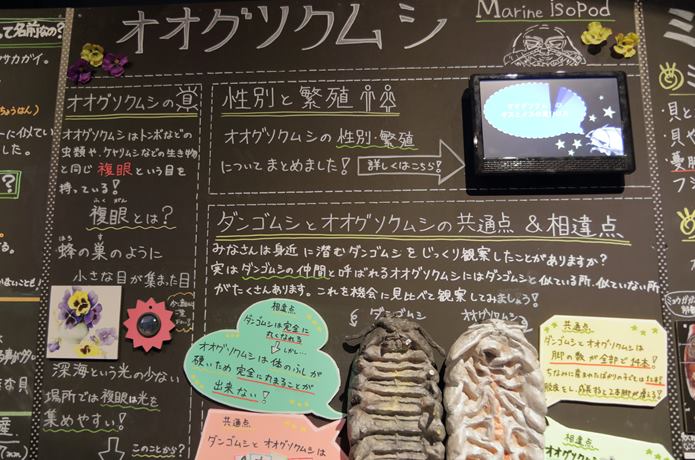 オオグソクムシ
Marine isopod
オオグソクムシの
オオグソクムシはトンボなどの
虫類や、ケヤリムシなどの生き物
と同じ 複眼 という目を
持っている!
ふくがん
複眼とは?
はち す
蜂の巣のように
小さな目が集まった目
深海という光の少ない
場所では複眼は光を
集めやすい!
このことから?
性別と繁殖
オオグソクムシの 性別・繁殖
についてまとめました!
詳しくはこちら!
ダンゴムシとオオグソクムシの共通点 &相違点
みなさんは身近に潜むダンゴムシをじっくり観察したことがありますか?
実はダンゴムシの仲間と呼ばれるオオグソクムシにはダンゴムシと似ている所、似ていない所
がたくさんあります。これを機会に見比べて観察してみましょう!
ダンゴムシ
オオグソクムシ
相違点
ダンゴムシは完全に
丸くなれる
しかし…
オオグソクムシは体のふしが
硬いため 完全に丸まることが
出来ない!
共通点
ダンゴムシとオオグソクムシは
共通点
ダンゴムシとオオグソクムシは
脚の数が全部で14本!
相違点
って名前なの?
サカガイ。